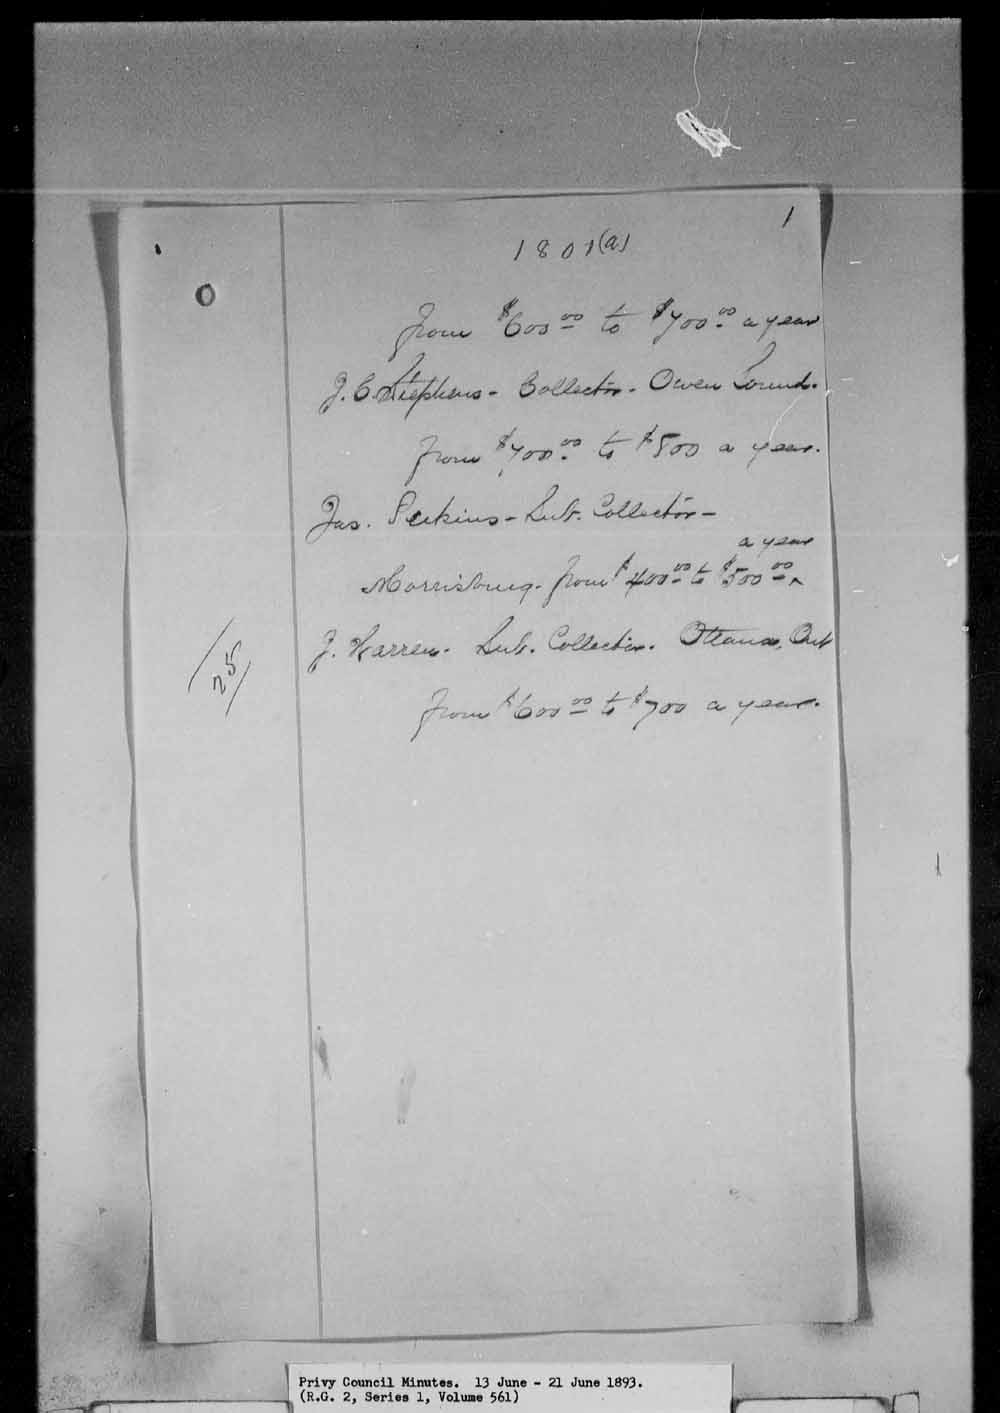 1
1801(a)
from $600.00 to $700.00 a year
J. C. Stephens - Collector - Owen Sound.
from $700.00 to $800 a year.
Jas. Perkins - Sub. Collector -
a year
Morrisburg - from $400.00 to $500.00 ^
J. Warren - Sub. Collector. Ottawa, Ont
from $600.00 to $700 a year.
/25/
Privy Council Minutes. 13 June - 21 June 1893.
(R.G. 2, Series 1, Volume 561)